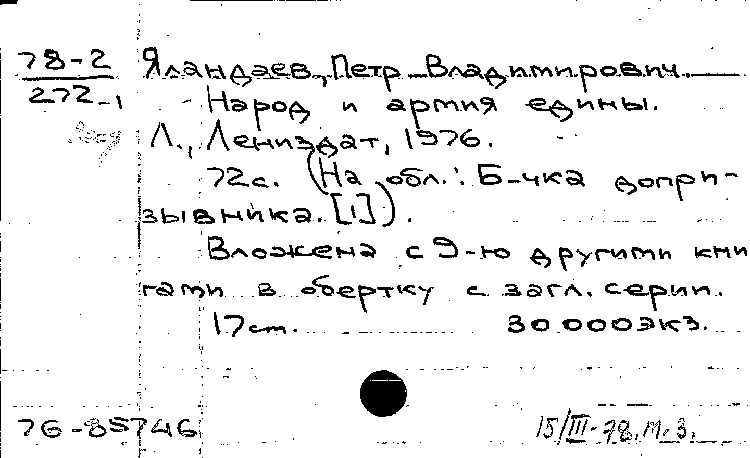 78-2 Яландаев, Петр Владимирович.
272-1 Народ и армия едины.
Л., Лениздат, 1976.
72с. (На обл.: Б-чка допри-
зывника. [1]).
Вложена с 9-ю другими кни
гами в обертку с загл. серии.
17 см. 30 000 экз.
76-85746 15/III-78. М.З.